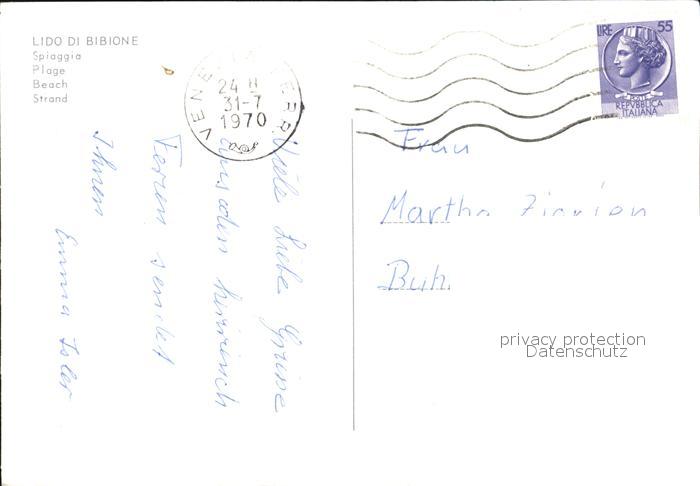 LIDO DI BIBIONE
Spiaggia
Plage
Beach
Strand
VENEZIA FERR.
24 H
31-7
1970
LIRE 55
REPVBBLICA
ITALIANA
Viele Liebe Grüsse
aus den
Ferien sendet
Ihnen
Emma Isler
Frau
Martha
Buh.
privacy protection
Datenschutz